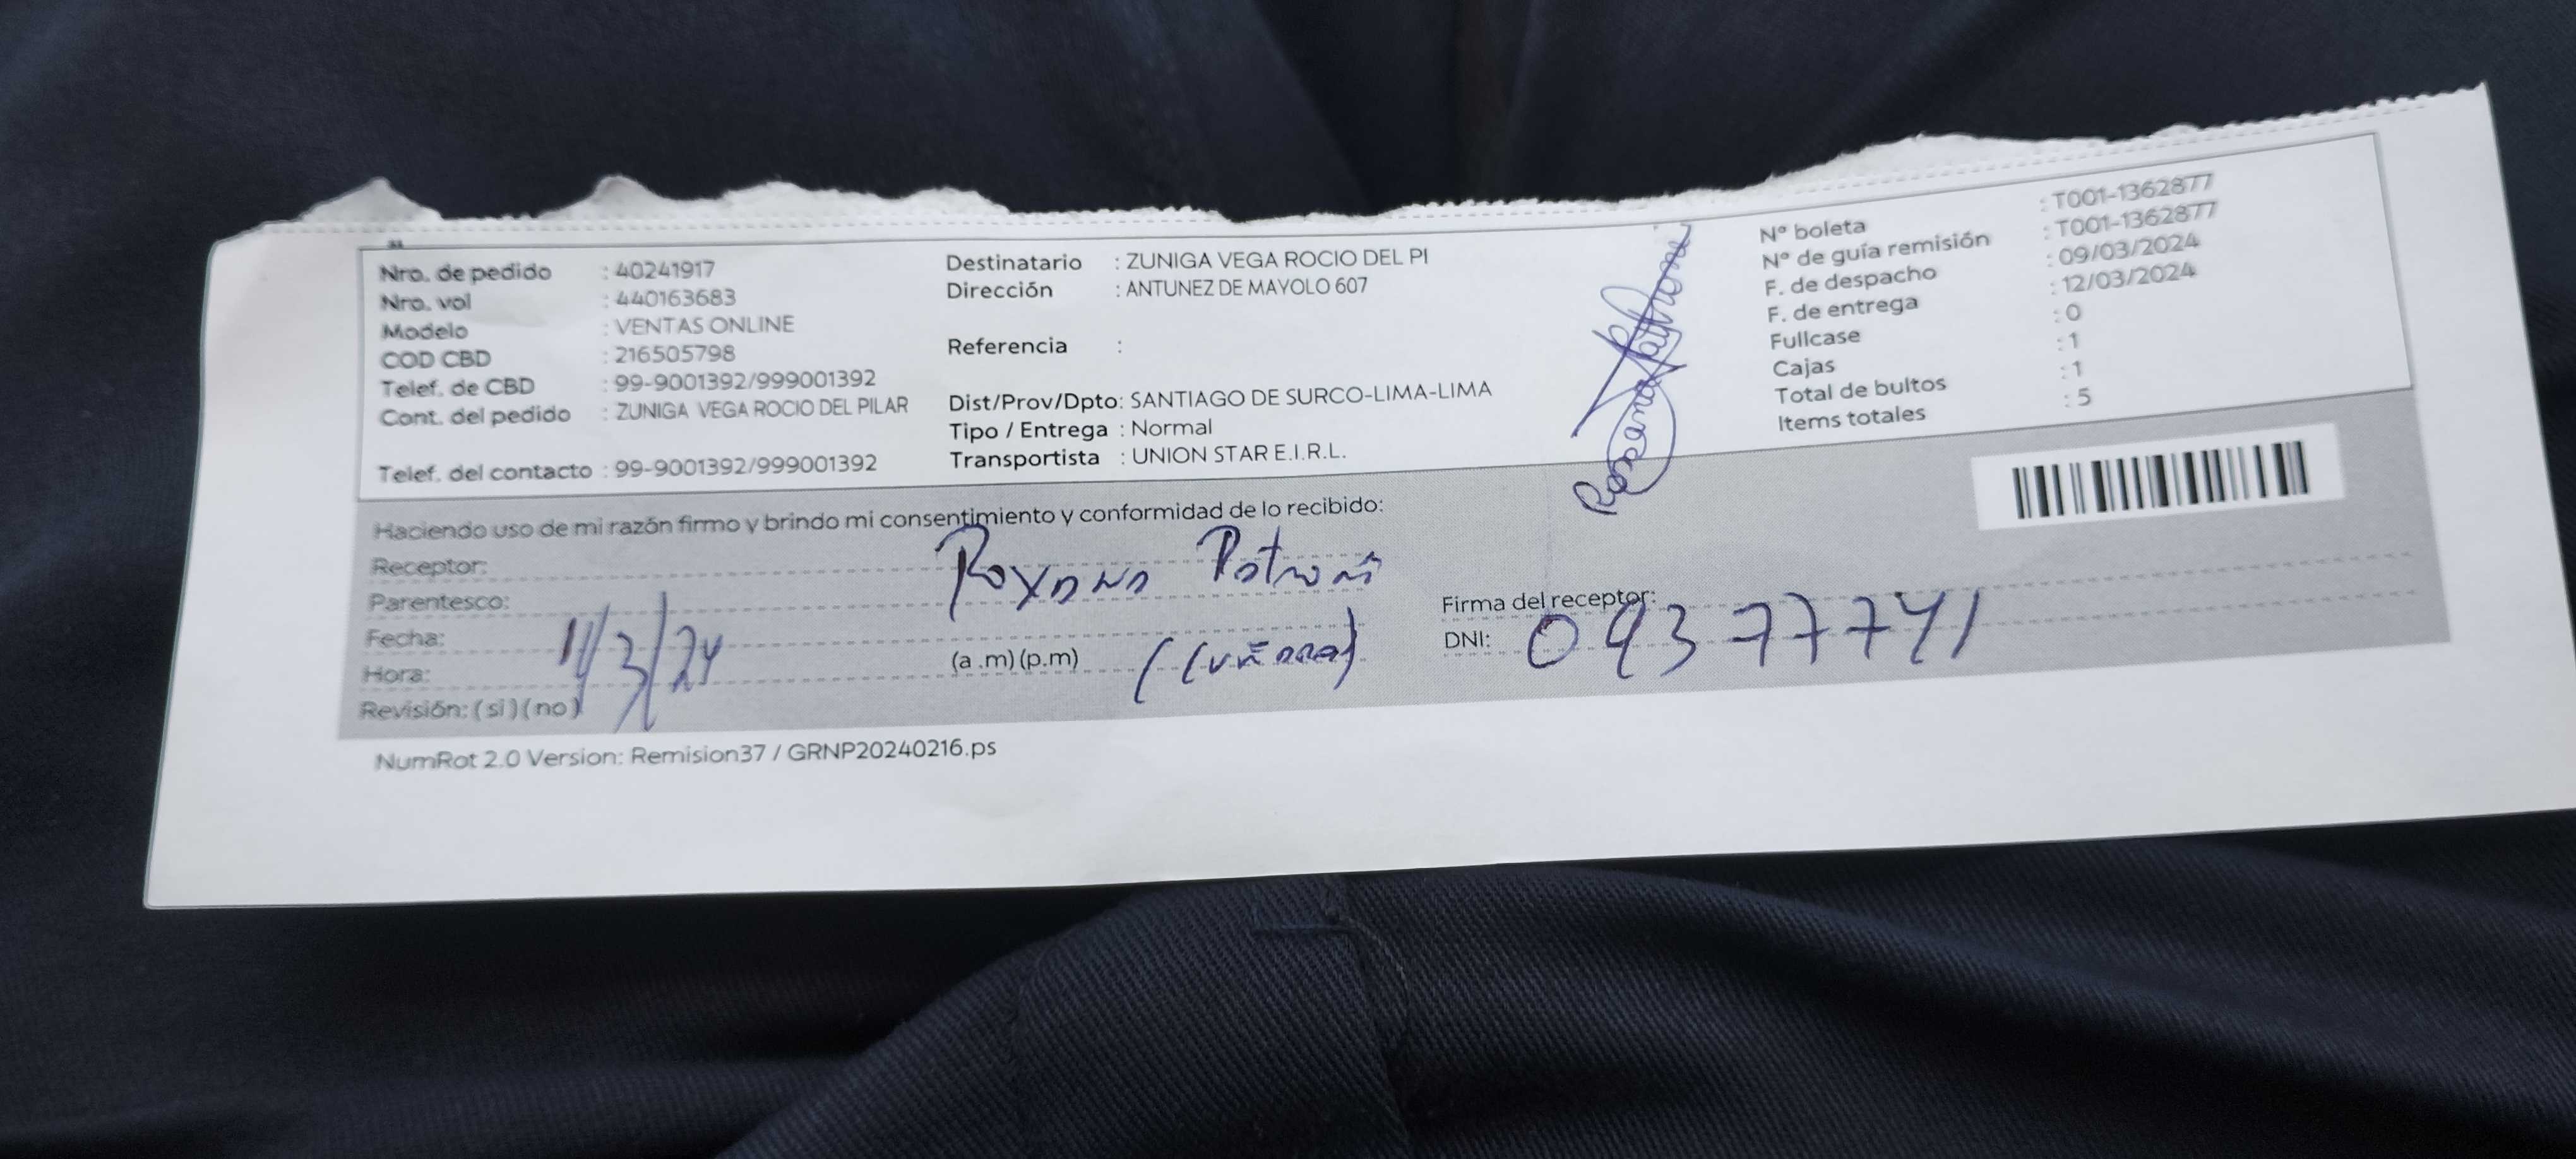 Nro. de pedido : 40241917
Nro. vol : 440163683
Modelo : VENTAS ONLINE
COD CBD : 216505798
Telef. de CBD : 99-9001392/999001392
Cont. del pedido : ZUNIGA VEGA ROCIO DEL PILAR
Telef. del contacto : 99-9001392/999001392
Destinatario : ZUNIGA VEGA ROCIO DEL PI
Dirección : ANTUNEZ DE MAYOLO 607
Referencia :
Dist/Prov/Dpto: SANTIAGO DE SURCO-LIMA-LIMA
Tipo / Entrega : Normal
Transportista : UNION STAR E.I.R.L.
Nº boleta : T001-1362877
Nº de guía remisión : T001-1362877
F. de despacho : 09/03/2024
F. de entrega : 12/03/2024
Fullcase : 0
Cajas : 1
Total de bultos : 1
Items totales : 5
Haciendo uso de mi razón firmo y brindo mi consentimiento y conformidad de lo recibido:
Receptor: Roxana
Parentesco:
Fecha: 11/3/24
Hora: (a .m) (p.m)
Revisión: ( si ) ( no )
Firma del receptor:
DNI: 09377741
NumRot 2.0 Version: Remision37 / GRNP20240216.ps